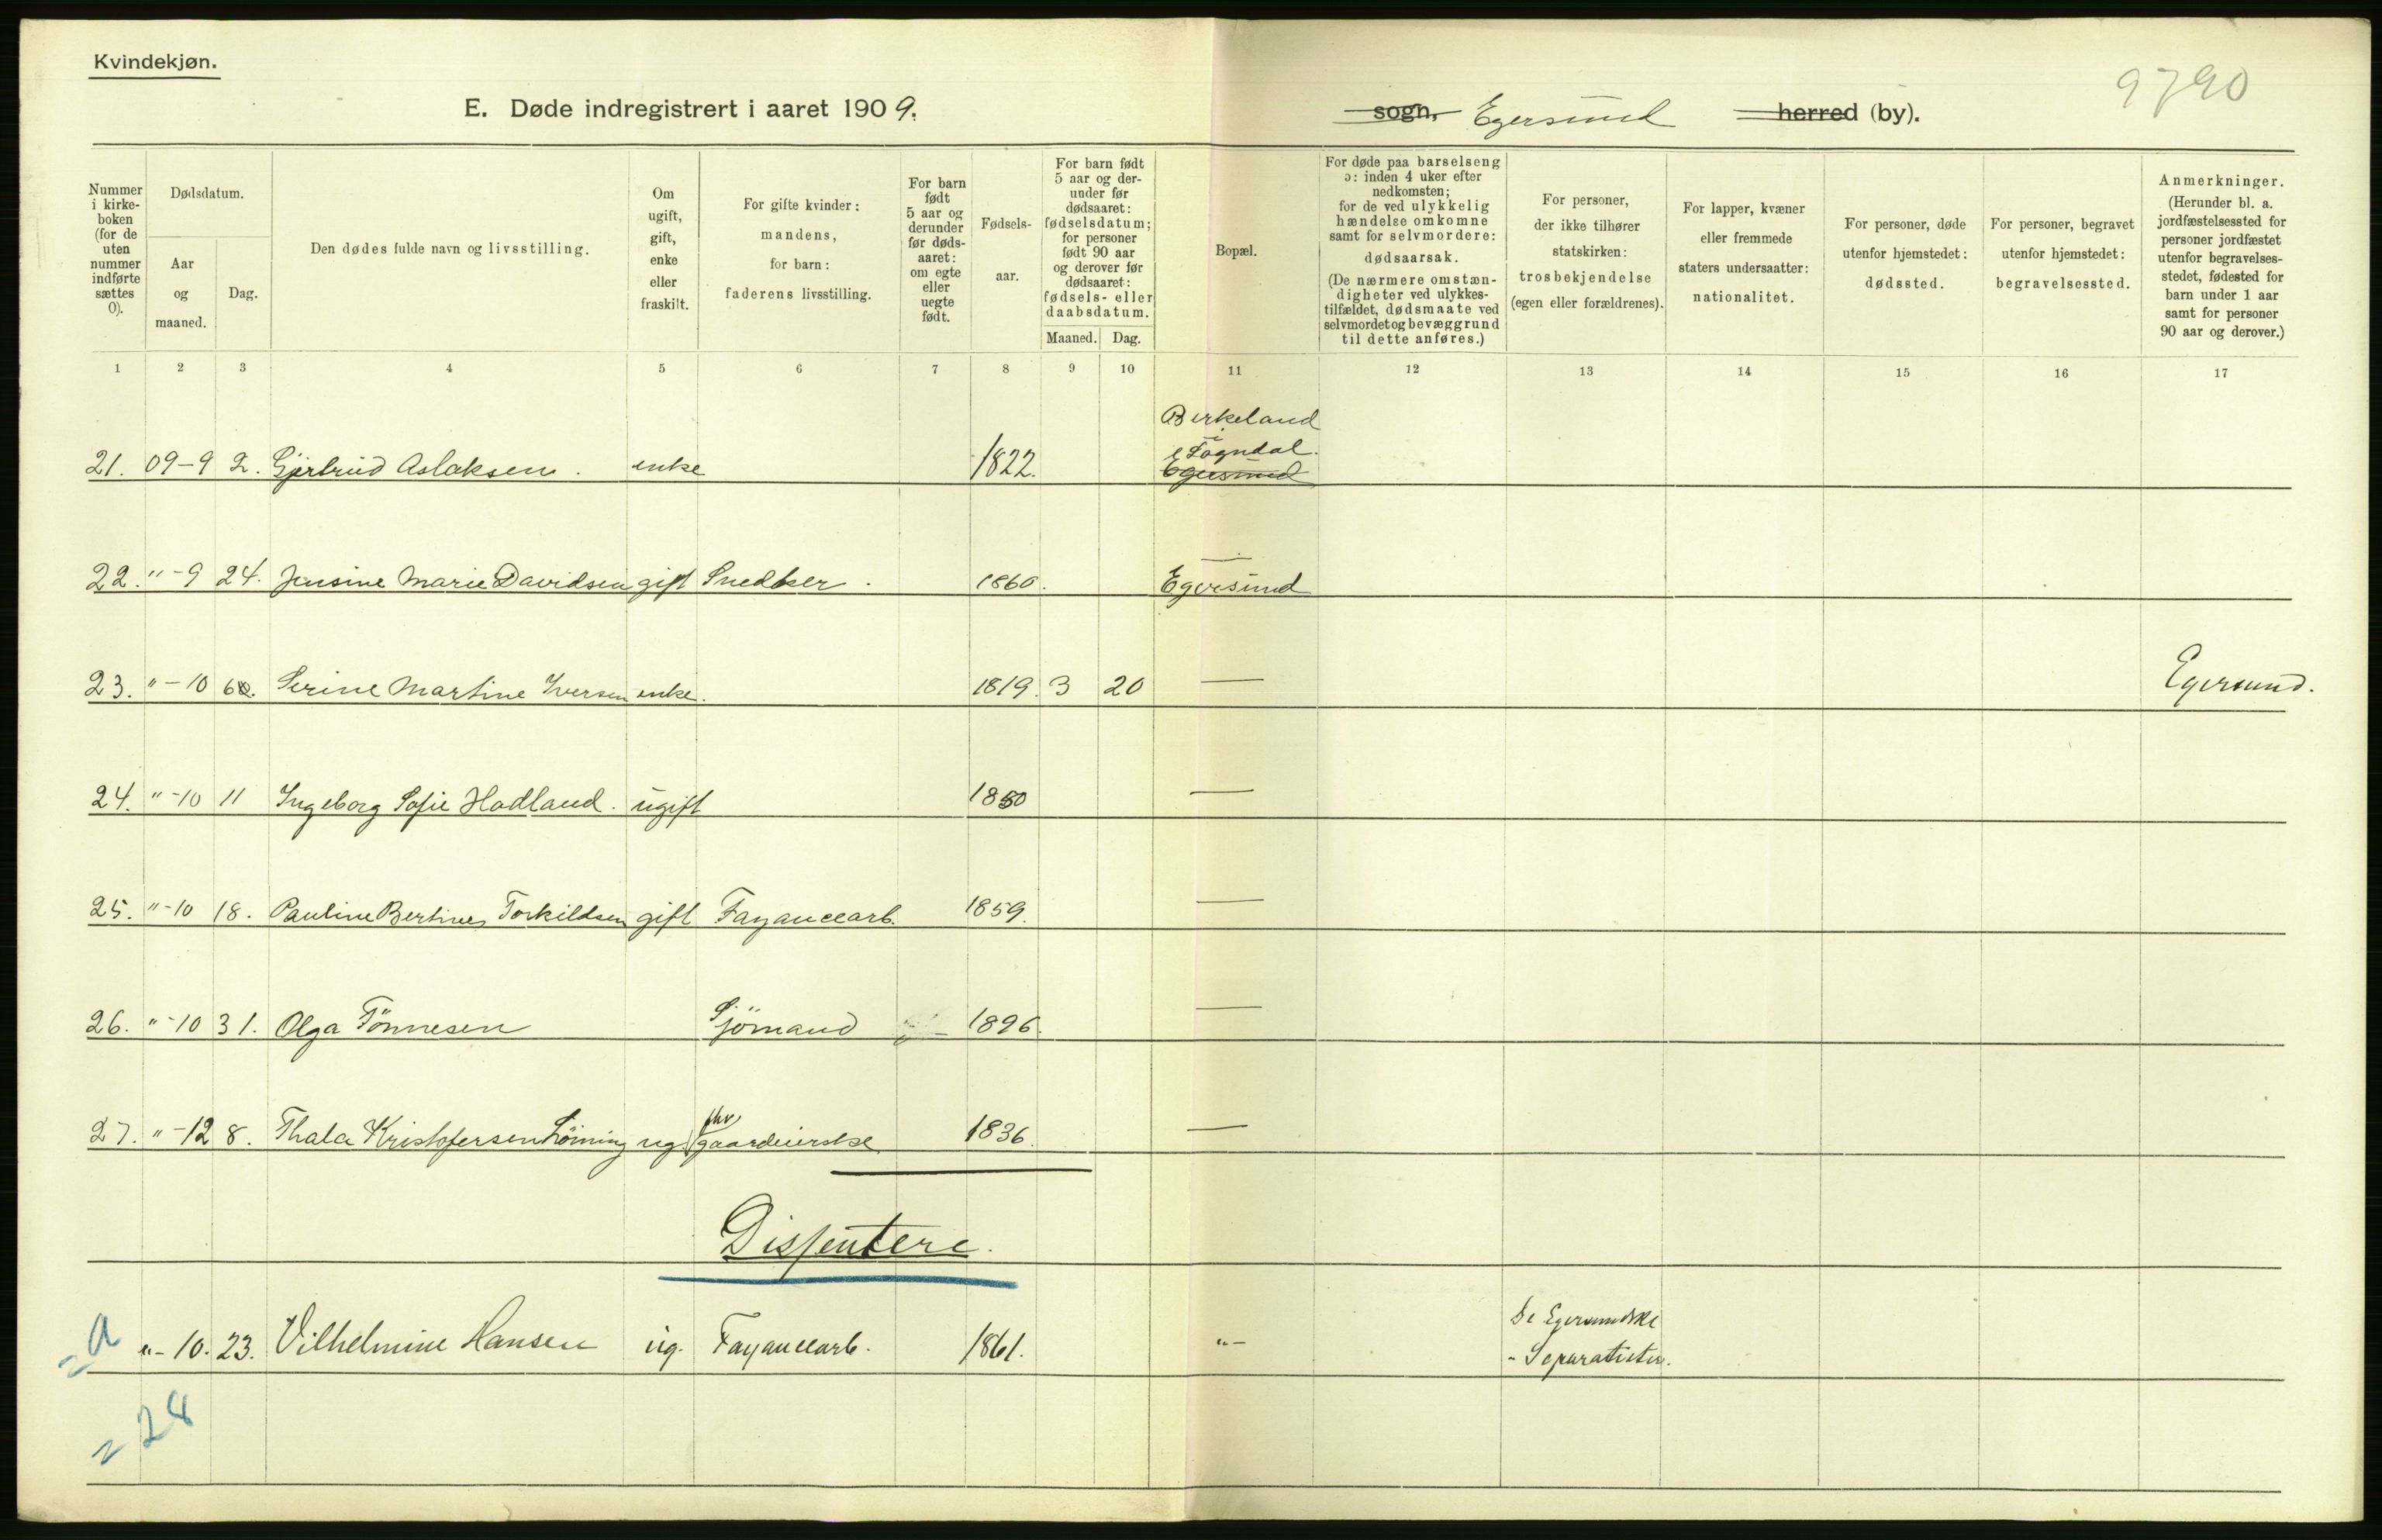 Kvindekjøn.
9790
E. Døde indregistrert i aaret 1909.
sogn, Egersund herred (by).
Nummer i kirkeboken (for de uten nummer indførte sættes 0).
Dødsdatum.
Aar og maaned.
Dag.
Den dødes fulde navn og livsstilling.
Om ugift, gift, enke eller fraskilt.
For gifte kvinder: mandens, for barn: faderens livsstilling.
For barn født 5 aar og derunder før dødsaaret: om egte eller uegte født.
Fødselsaar.
For barn født 5 aar og derunder før dødsaaret: fødselsdatum; for personer født 90 aar og derover før dødsaaret: fødsels- eller daabsdatum.
Maaned. Dag.
Bopæl.
For døde paa barselseng ɔ: inden 4 uker efter nedkomsten; for de ved ulykkelig hændelse omkomne samt for selvmordere: dødsaarsak. (De nærmere omstændigheter ved ulykkestilfældet, dødsmaate ved selvmordet og bevæggrund til dette anføres.)
For personer, der ikke tilhører statskirken: trosbekjendelse (egen eller forældrenes).
For lapper, kvæner eller fremmede staters undersaatter: nationalitet.
For personer, døde utenfor hjemstedet: dødssted.
For personer, begravet utenfor hjemstedet: begravelsessted.
Anmerkninger. (Herunder bl. a. jordfæstelsessted for personer jordfæstet utenfor begravelsesstedet, fødested for barn under 1 aar samt for personer 90 aar og derover.)
1 2 3 4 5 6 7 8 9 10 11 12 13 14 15 16 17
Birkeland
i Sogndal.
21. 09-9 2. Gjertrud Aslaksen. enke 1822. Egersund
22. "-9 24. Jensine Marie Davidsen gift Snedker. 1860. Egersund
23. "-10 6. Serine Martine Iversen enke. 1819. 3 20 — Egersund.
24. "-10 11 Ingeborg Sofie Hadland. ugift 1850 —
25. "-10 18. Pauline Bertine Torkildsen gift Fayancearb. 1859. —
26. "-10 31. Olga Tönnesen Sjömand 1896. —
fhv
27. "-12 8. Thala Kristofersen ug. gaardeierske 1836. —
Dissentere.
a "- 10. 23. Vilhelmine Hansen ug. Fayancearb. 1861. "- De Egersundske
- Separatister.
= 28